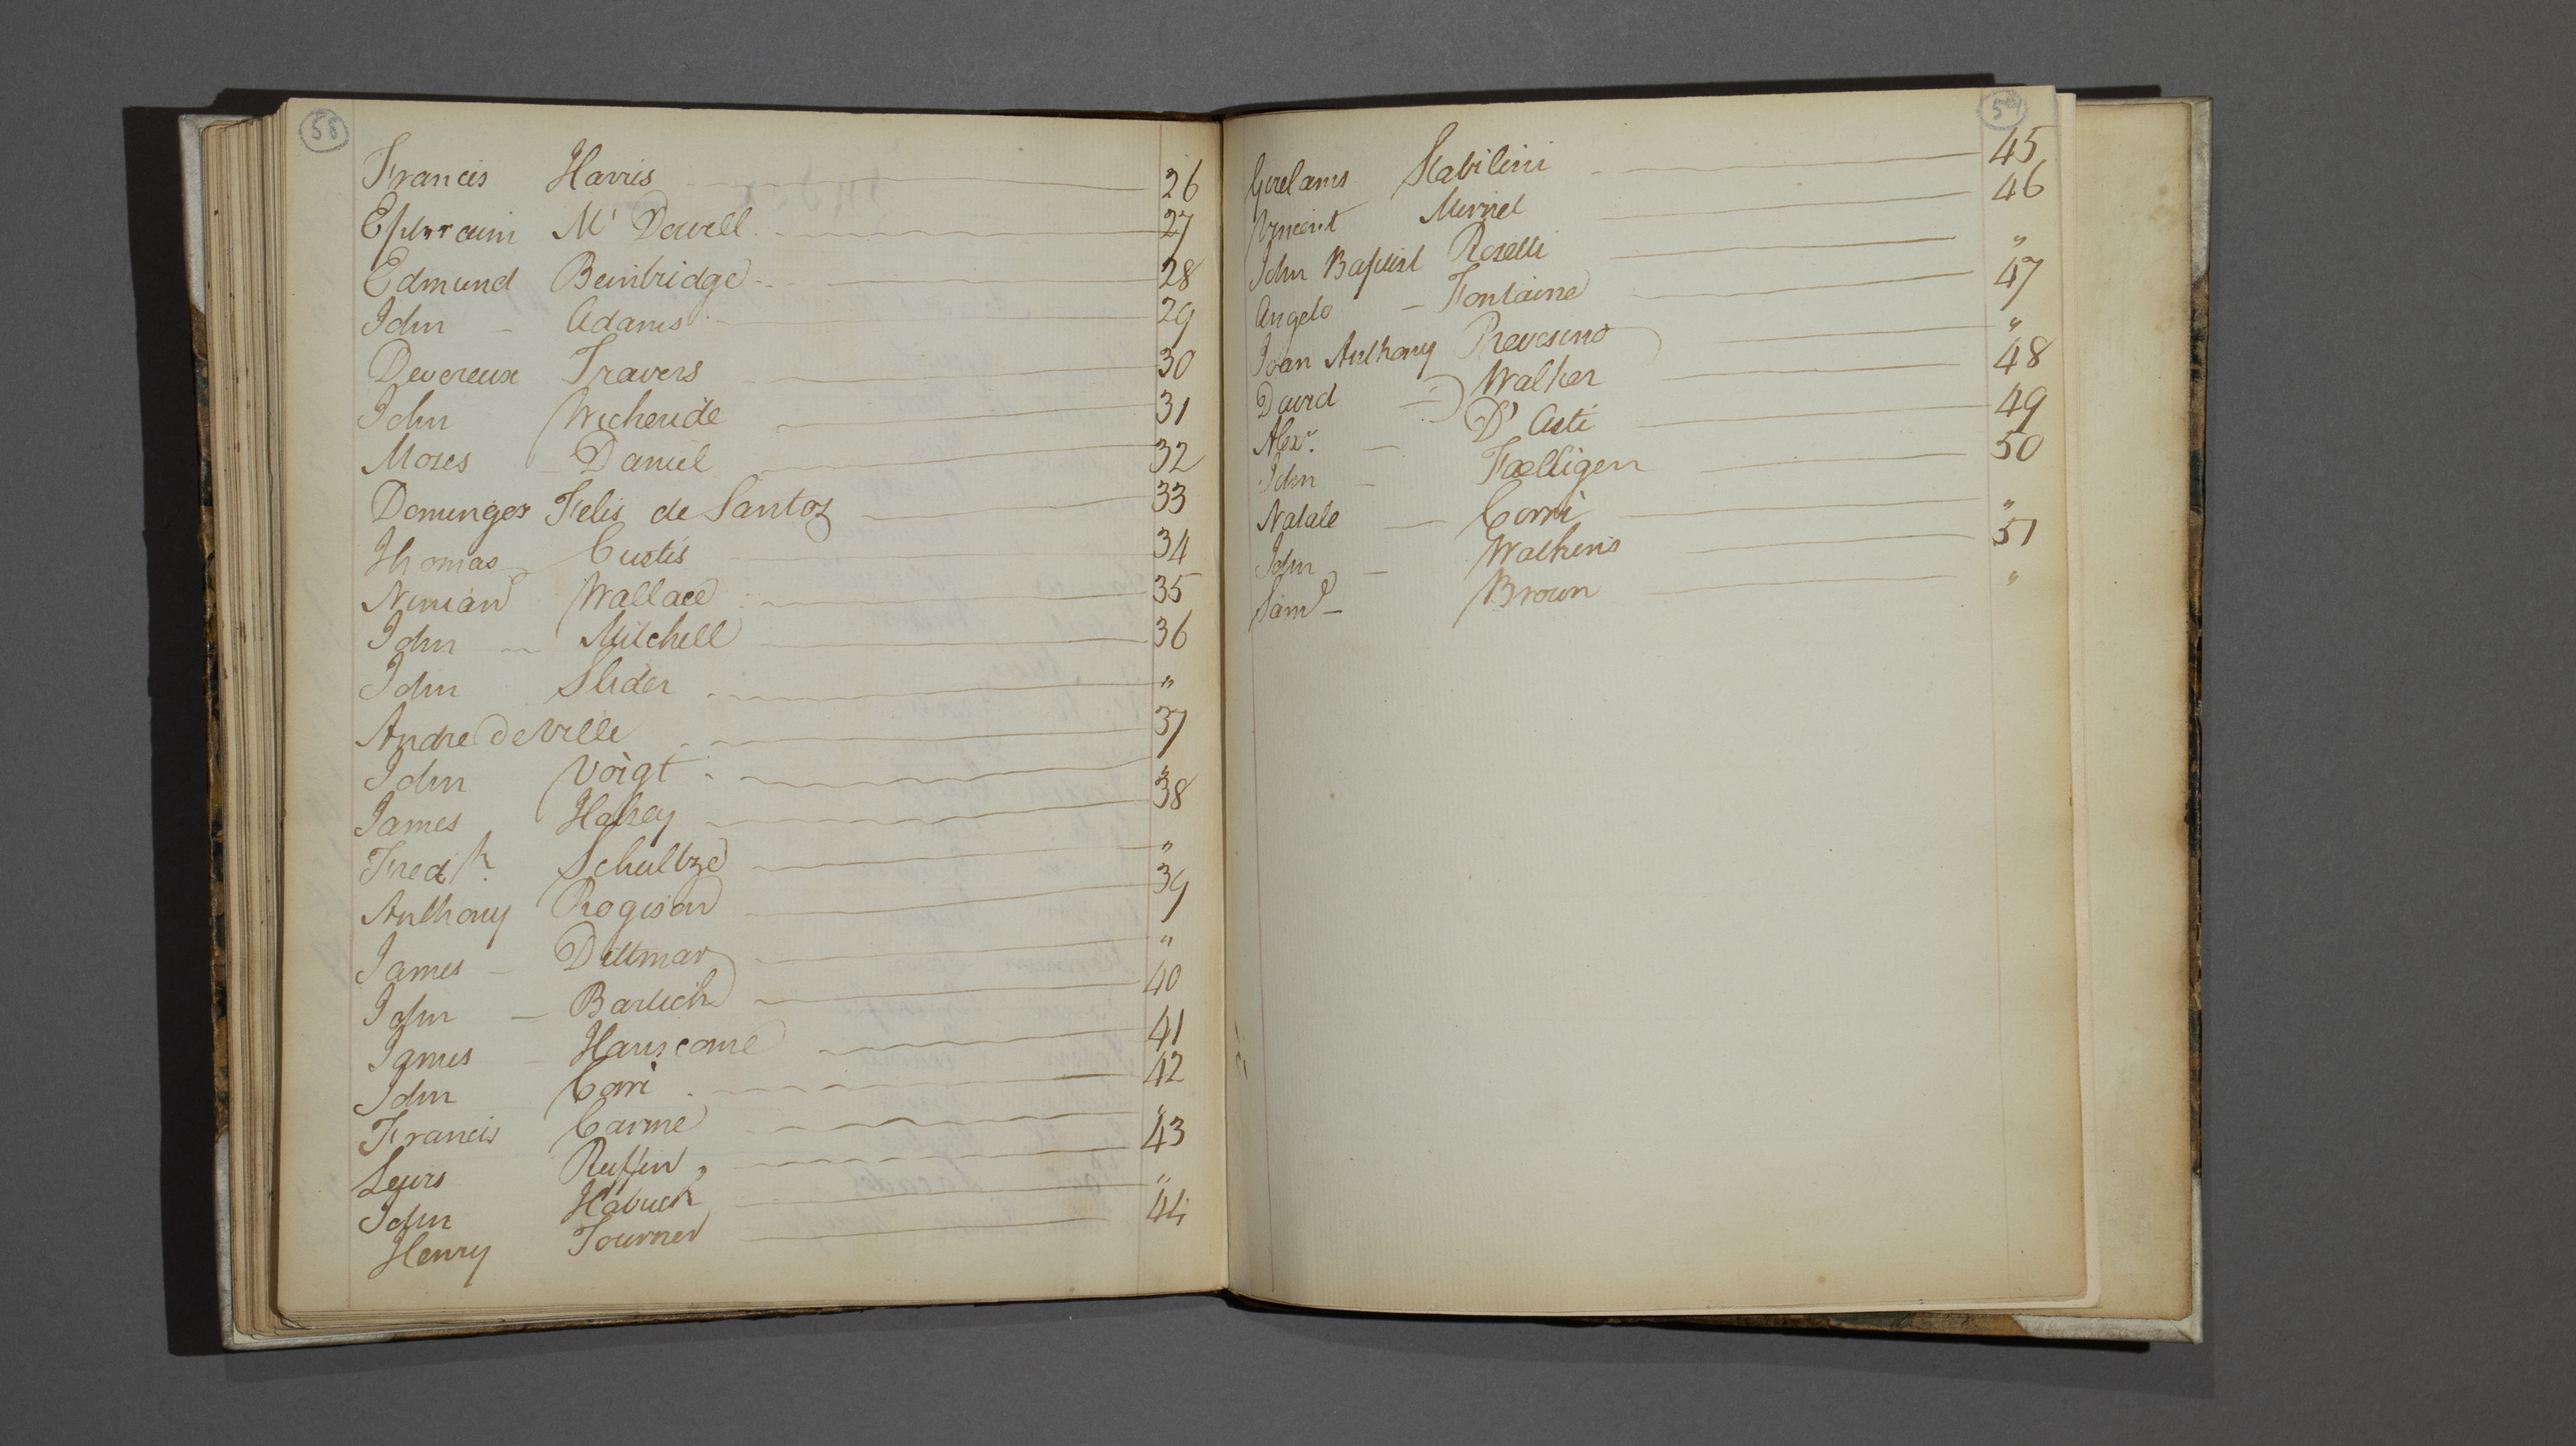 58
Francis Harris 26
Ephraim Mc Dowell 27
Edmund Bainbridge 28
John - Adams 29
Devereux Travers 30
John Wicheride 31
Moses - Daniel 32
Domingos Felis de Santos 33
Thomas Custis 34
Ninian Wallace 35
John - Mitchell 36
John Slider "
Andre DeVille 37
John Voigt "
James Hahey 38
Fredk. Schultze "
Anthony Rogison 39
James - Dittmar "
John - Bartich 40
James - Hanscome 41
John Corri 42
Francis Carme "
Leurs Ruffin 43
John Habuch "
Henry Tourner 44
59
Stabilini 45
Vincent Mernel 46
John Baptist Roselli "
Angelo - Fontaine 47
Joan Anthony Prevesino "
David - Walker 48
Alexr. - D'Asti 49
John - Foelligen 50
Natale - Corri "
John - Watkins 51
Saml - Brown "